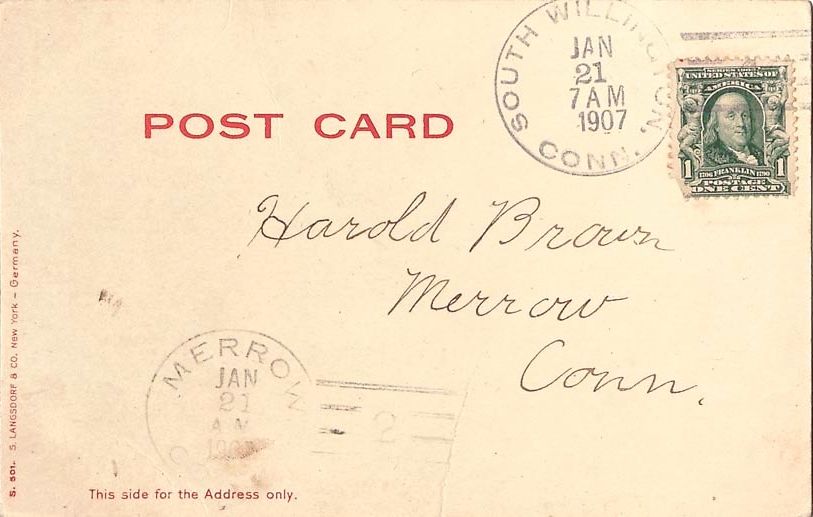 SOUTH WILLINGTON, CONN.
JAN
21
7 AM
1907
SERIES 1902
UNITED STATES OF
AMERICA
1 1
1706 FRANKLIN 1790
POSTAGE
ONE CENT
POST CARD
Harold Brown
Merrow
Conn.
MERROW
JAN
21
2
S. 501. S. LANGSDORF & CO. New York – Germany.
This side for the Address only.